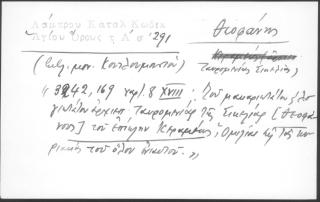 Λάμπρου Καταλ Κωδικ
Ἁγίου Ὄρους τ. Α΄ σ 291
Θεοφάνης
Ταυρομενίας Σικελίας
(Βιβλ. μον. Κουτλουμουσίου)
" 3242, 169 χαρ. 8 XVIII. Τοῦ μακαριωτάτου
ἀρχιεπ. Ταυρομενίας τῆς Σικελίας [Θεοφά
νους] τοῦ ἐπίκλην Κεραμέως, Ὁμιλίαι εἰς τὰς κυ
ριακὰς τοῦ ὅλου ἐνιαυτοῦ. "